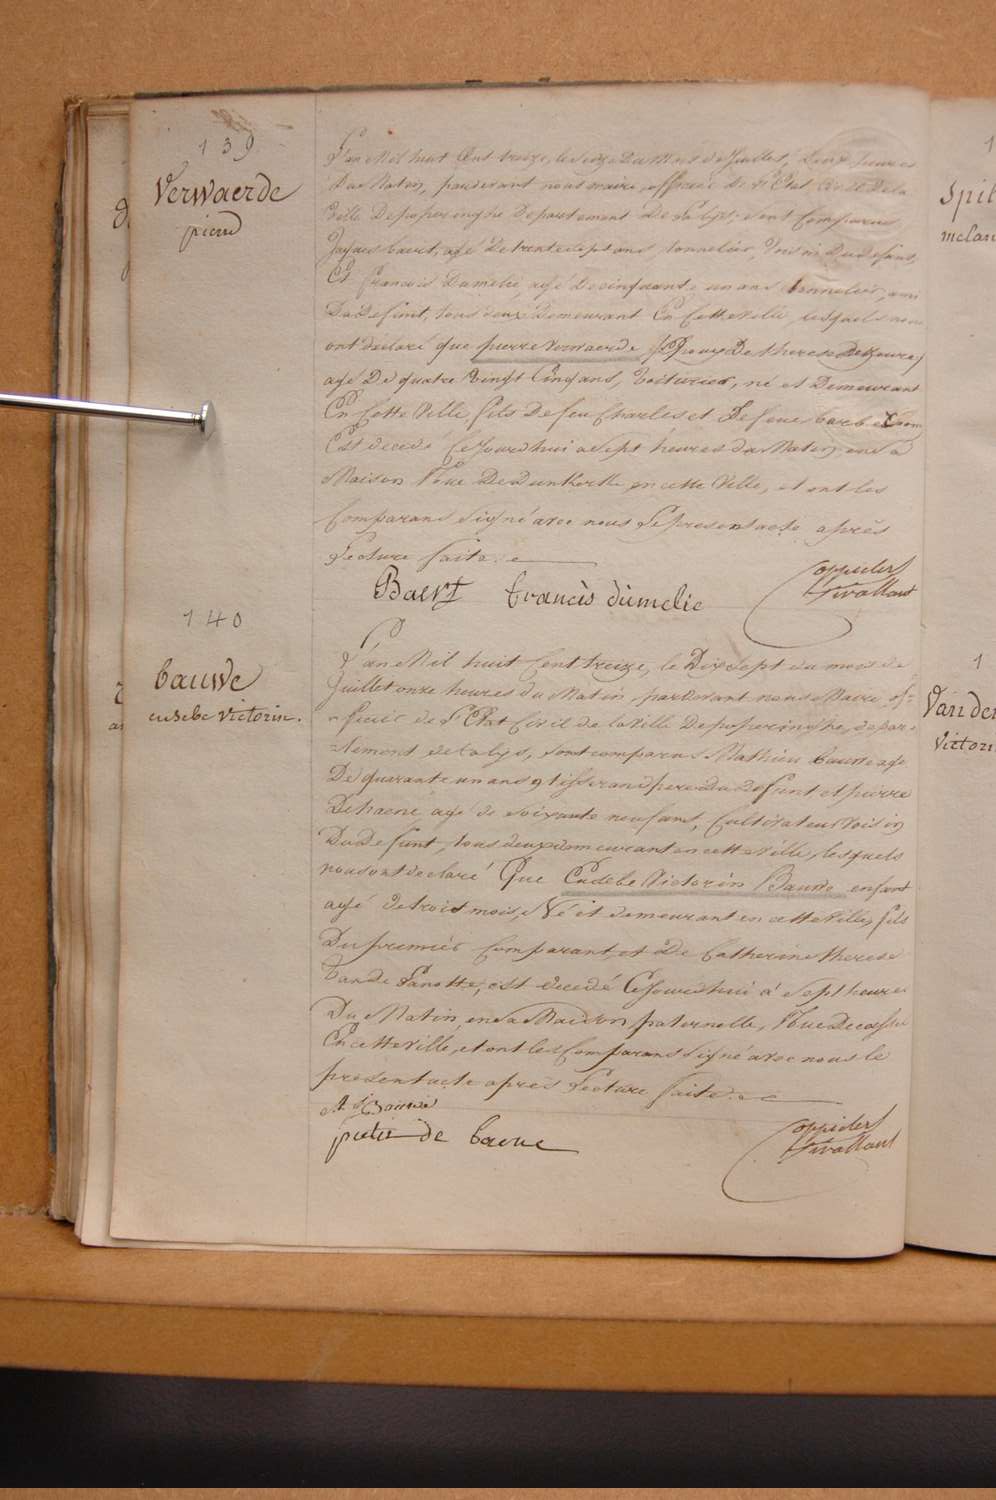 139
Verwaerde
pierre
L'an Mil huit Cent treize, le seize du Mois de Juillet, heures
Du Matin, pardevant nous maire, officier de l'Etat Civil de la
Ville De poperinghe Departement De la Lys, sont Comparus
Jacques baert, agé de trente sept ans, tonnelier, Voisin du defunt,
Et francois Dumelie, agé De cinquante un ans tonnelier, ami
Du Defunt, tous deux Demeurant En Cette Ville, lesquels nous
ont declaré que pierre verwaerde Epoux De therese
agé De quatre Vingt Cinq ans, Voiturier, né et Demeurant
En Cette Ville fils De feu Charles et De feue barbe
Est decedé Cejourdhui a sept heures du Matin, en sa
Maison Rue De dunkerke en cette Ville, et ont les
Comparans signé avec nous Le present acte après
Lecture faite.
Baert francis dumelie
140
bauwe
eusebe victorin.
L'an Mil huit Cent treize, le Dix sept du mois de
Juillet onze heures du Matin pardevant nous Maire of-
-ficier de l'Etat Civil de la ville De poperinghe, depar-
-tement de la lys, sont comparus Mathieu bauwe agé
De quarante un ans, tisserand pere du defunt et pierre
Dehaene, agé de soixante neuf ans, Cultivateur Voisin
Du Defunt, tous deux demeurant en cette ville, lesquels
nous ont declaré Que Eusebe Victorin Bauwe enfant
agé de trois mois, Né et demeurant en cette Ville, fils
Du premier Comparant, et De Catherine therese
Vande Lanotte, est decedé Cejourdhui à sept heures
Du Matin, en sa Maison paternelle, Rue De cassel
En cette ville, et ont les Comparans signé avec nous le
present acte après Lecture faite.
Bauwe
pieter de haene
Spil
melan
Van der
Victori